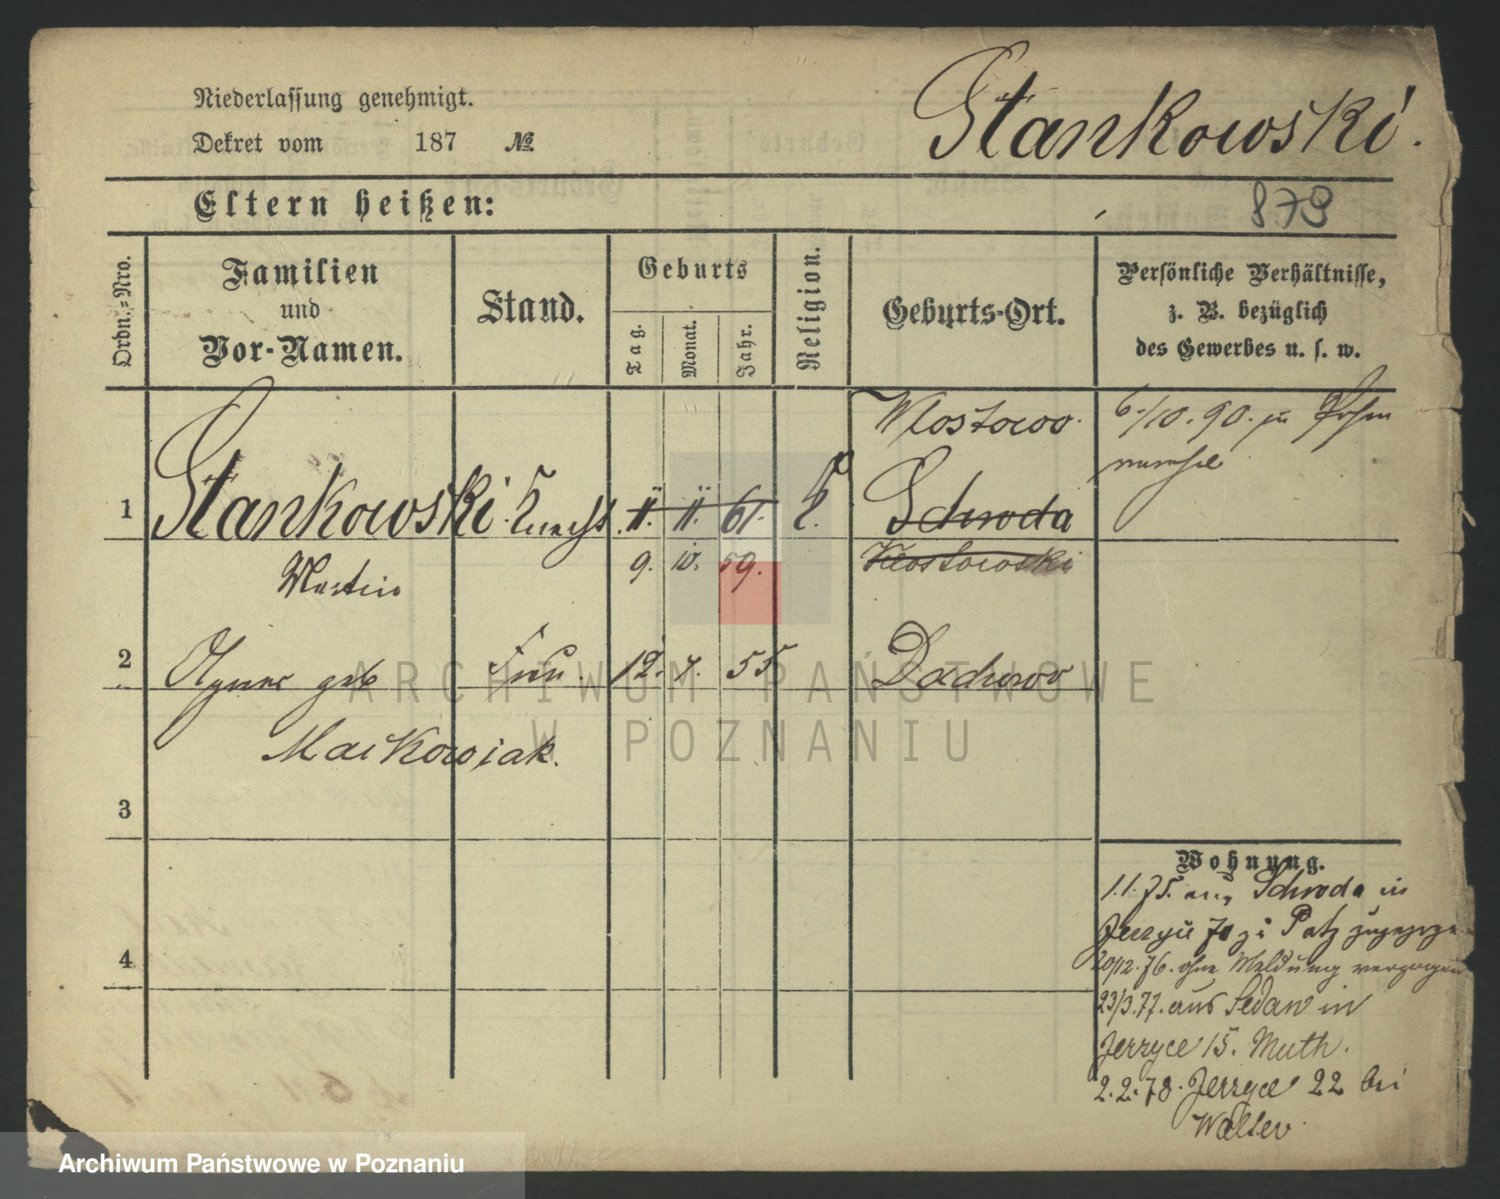 Niederlassung genehmigt.
Dekret vom 187 №
Stankowski.
Eltern heißen:
879
Ordn.-Nro.
Familien
und
Vor-Namen.
Stand.
Geburts
Tag.
Monat.
Jahr.
Religion.
Geburts-Ort.
Persönliche Verhältnisse,
z. B. bezüglich
des Gewerbes u. s. w.
Wlostowo.
6./10.90. zu
1 Stankowski Knecht. 11. 11. 61. K. Schroda
Martin 9. 10. 59. Klostowski
2 Agnes geb Frau. 12. 7. 55 Dachowo
Markowiak.
3
4
Wohnung.
1.1.75. aus Schroda in
70 zu Patz zugezogen
20/12.76. ohne Meldung verzogen
23/3.77. aus Sedan in
Jerzyce 15. Muth.
2.2.78. Jerzyce 22 bei
Walter
ARCHIWUM PAŃSTWOWE
W POZNANIU
Archiwum Państwowe w Poznaniu